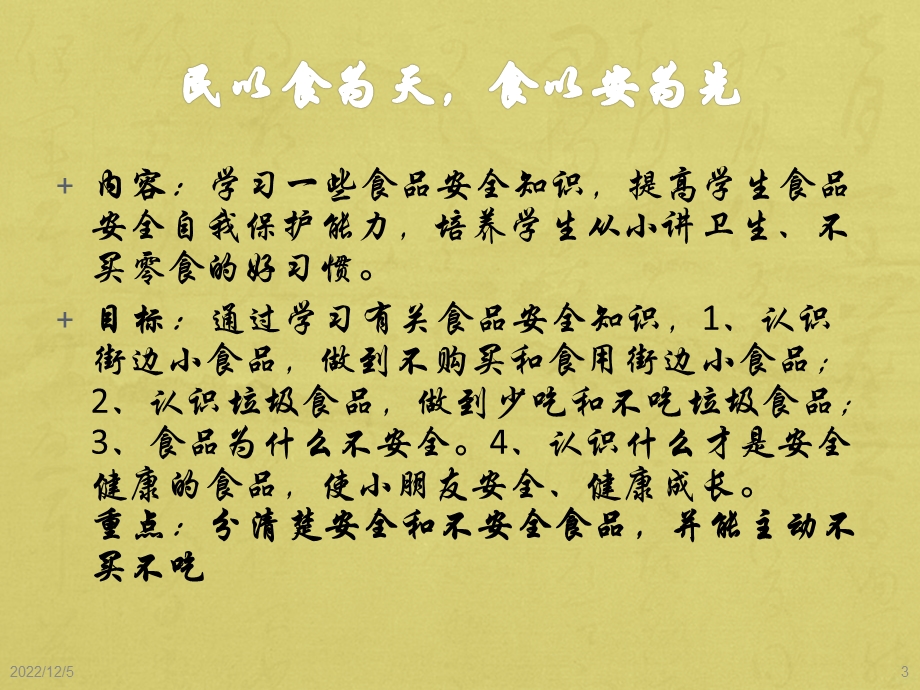 民以食为天，食以安为先
+ 内容：学习一些食品安全知识，提高学生食品
安全自我保护能力，培养学生从小讲卫生、不
买零食的好习惯。
+ 目标：通过学习有关食品安全知识，1、认识
街边小食品，做到不购买和食用街边小食品；
2、认识垃圾食品，做到少吃和不吃垃圾食品；
3、食品为什么不安全。4、认识什么才是安全
健康的食品，使小朋友安全、健康成长。
重点：分清楚安全和不安全食品，并能主动不
买不吃
2022/12/5
3